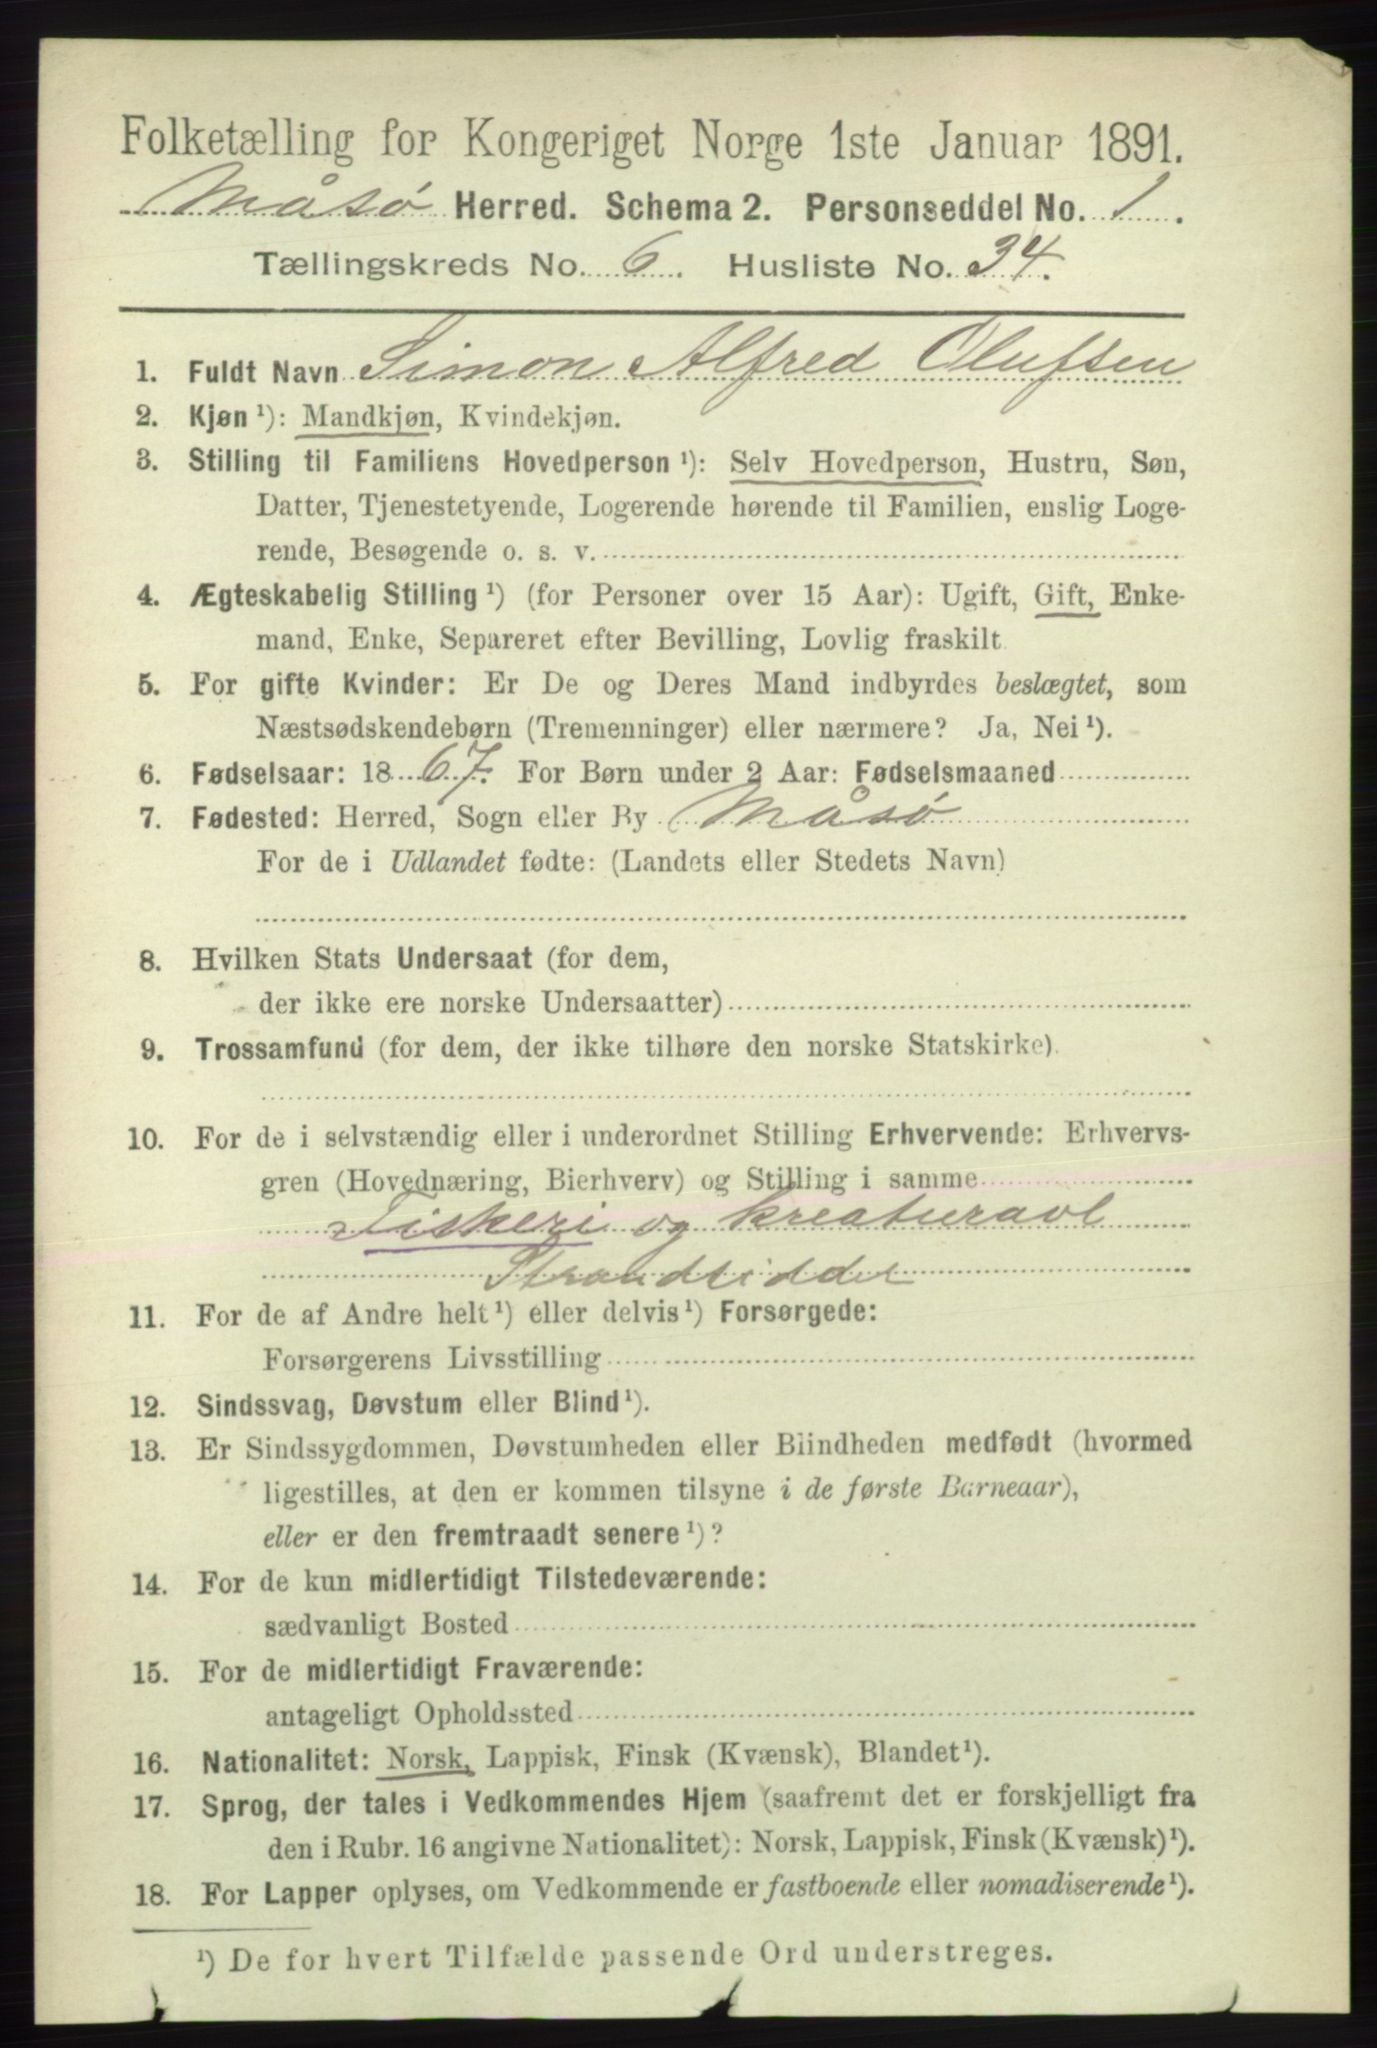 Folketælling for Kongeriget Norge 1ste Januar 1891.
Måsø Herred. Schema 2. Personseddel No. 1.
Tællingskreds No. 6. Husliste No. 34.
1. Fuldt Navn Simon Alfred Olufsen
2. Kjøn ¹): Mandkjøn, Kvindekjøn.
3. Stilling til Familiens Hovedperson ¹): Selv Hovedperson, Hustru, Søn,
Datter, Tjenestetyende, Logerende hørende til Familien, enslig Loge-
rende, Besøgende o. s. v.
4. Ægteskabelig Stilling ¹) (for Personer over 15 Aar): Ugift, Gift, Enke-
mand, Enke, Separeret efter Bevilling, Lovlig fraskilt.
5. For gifte Kvinder: Er De og Deres Mand indbyrdes beslægtet, som
Næstsødskendebørn (Tremenninger) eller nærmere? Ja, Nei ¹).
6. Fødselsaar: 1867. For Børn under 2 Aar: Fødselsmaaned
7. Fødested: Herred, Sogn eller By Måsø
For de i Udlandet fødte: (Landets eller Stedets Navn)
8. Hvilken Stats Undersaat (for dem,
der ikke ere norske Undersaatter)
9. Trossamfund (for dem, der ikke tilhøre den norske Statskirke).
10. For de i selvstændig eller i underordnet Stilling Erhvervende: Erhvervs-
gren (Hovednæring, Bierhverv) og Stilling i samme
Fiskeri og kreaturavl
Strandsidder
11. For de af Andre helt ¹) eller delvis ¹) Forsørgede:
Forsørgerens Livsstilling
12. Sindssvag, Døvstum eller Blind ¹).
13. Er Sindssygdommen, Døvstumheden eller Blindheden medfødt (hvormed
ligestilles, at den er kommen tilsyne i de første Barneaar),
eller er den fremtraadt senere ¹)?
14. For de kun midlertidigt Tilstedeværende:
sædvanligt Bosted
15. For de midlertidigt Fraværende:
antageligt Opholdssted
16. Nationalitet: Norsk, Lappisk, Finsk (Kvænsk), Blandet ¹).
17. Sprog, der tales i Vedkommendes Hjem (saafremt det er forskjelligt fra
den i Rubr. 16 angivne Nationalitet): Norsk, Lappisk, Finsk (Kvænsk) ¹).
18. For Lapper oplyses, om Vedkommende er fastboende eller nomadiserende ¹).
¹) De for hvert Tilfælde passende Ord understreges.